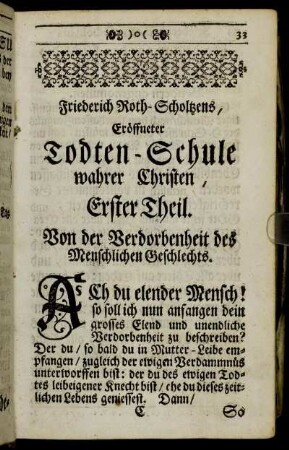 )o( 33
Friederich Roth-Scholtzens/
Eröffneter
Todten-Schule
wahrer Christen,
Erster Theil.
Von der Verdorbenheit des
Menschlichen Geschlechts.
ACh du elender Mensch!
so soll ich nun anfangen dein
grosses Elend und unendliche
Verdorbenheit zu beschreiben?
Der du/ so bald du in Mutter-Leibe em-
pfangen/ zugleich der ewigen Verdammnüs
unterworffen bist: der du des ewigen Tod-
tes leibeigener Knecht bist/ ehe du dieses zeit-
lichen Lebens geniessest. Dann/
C So